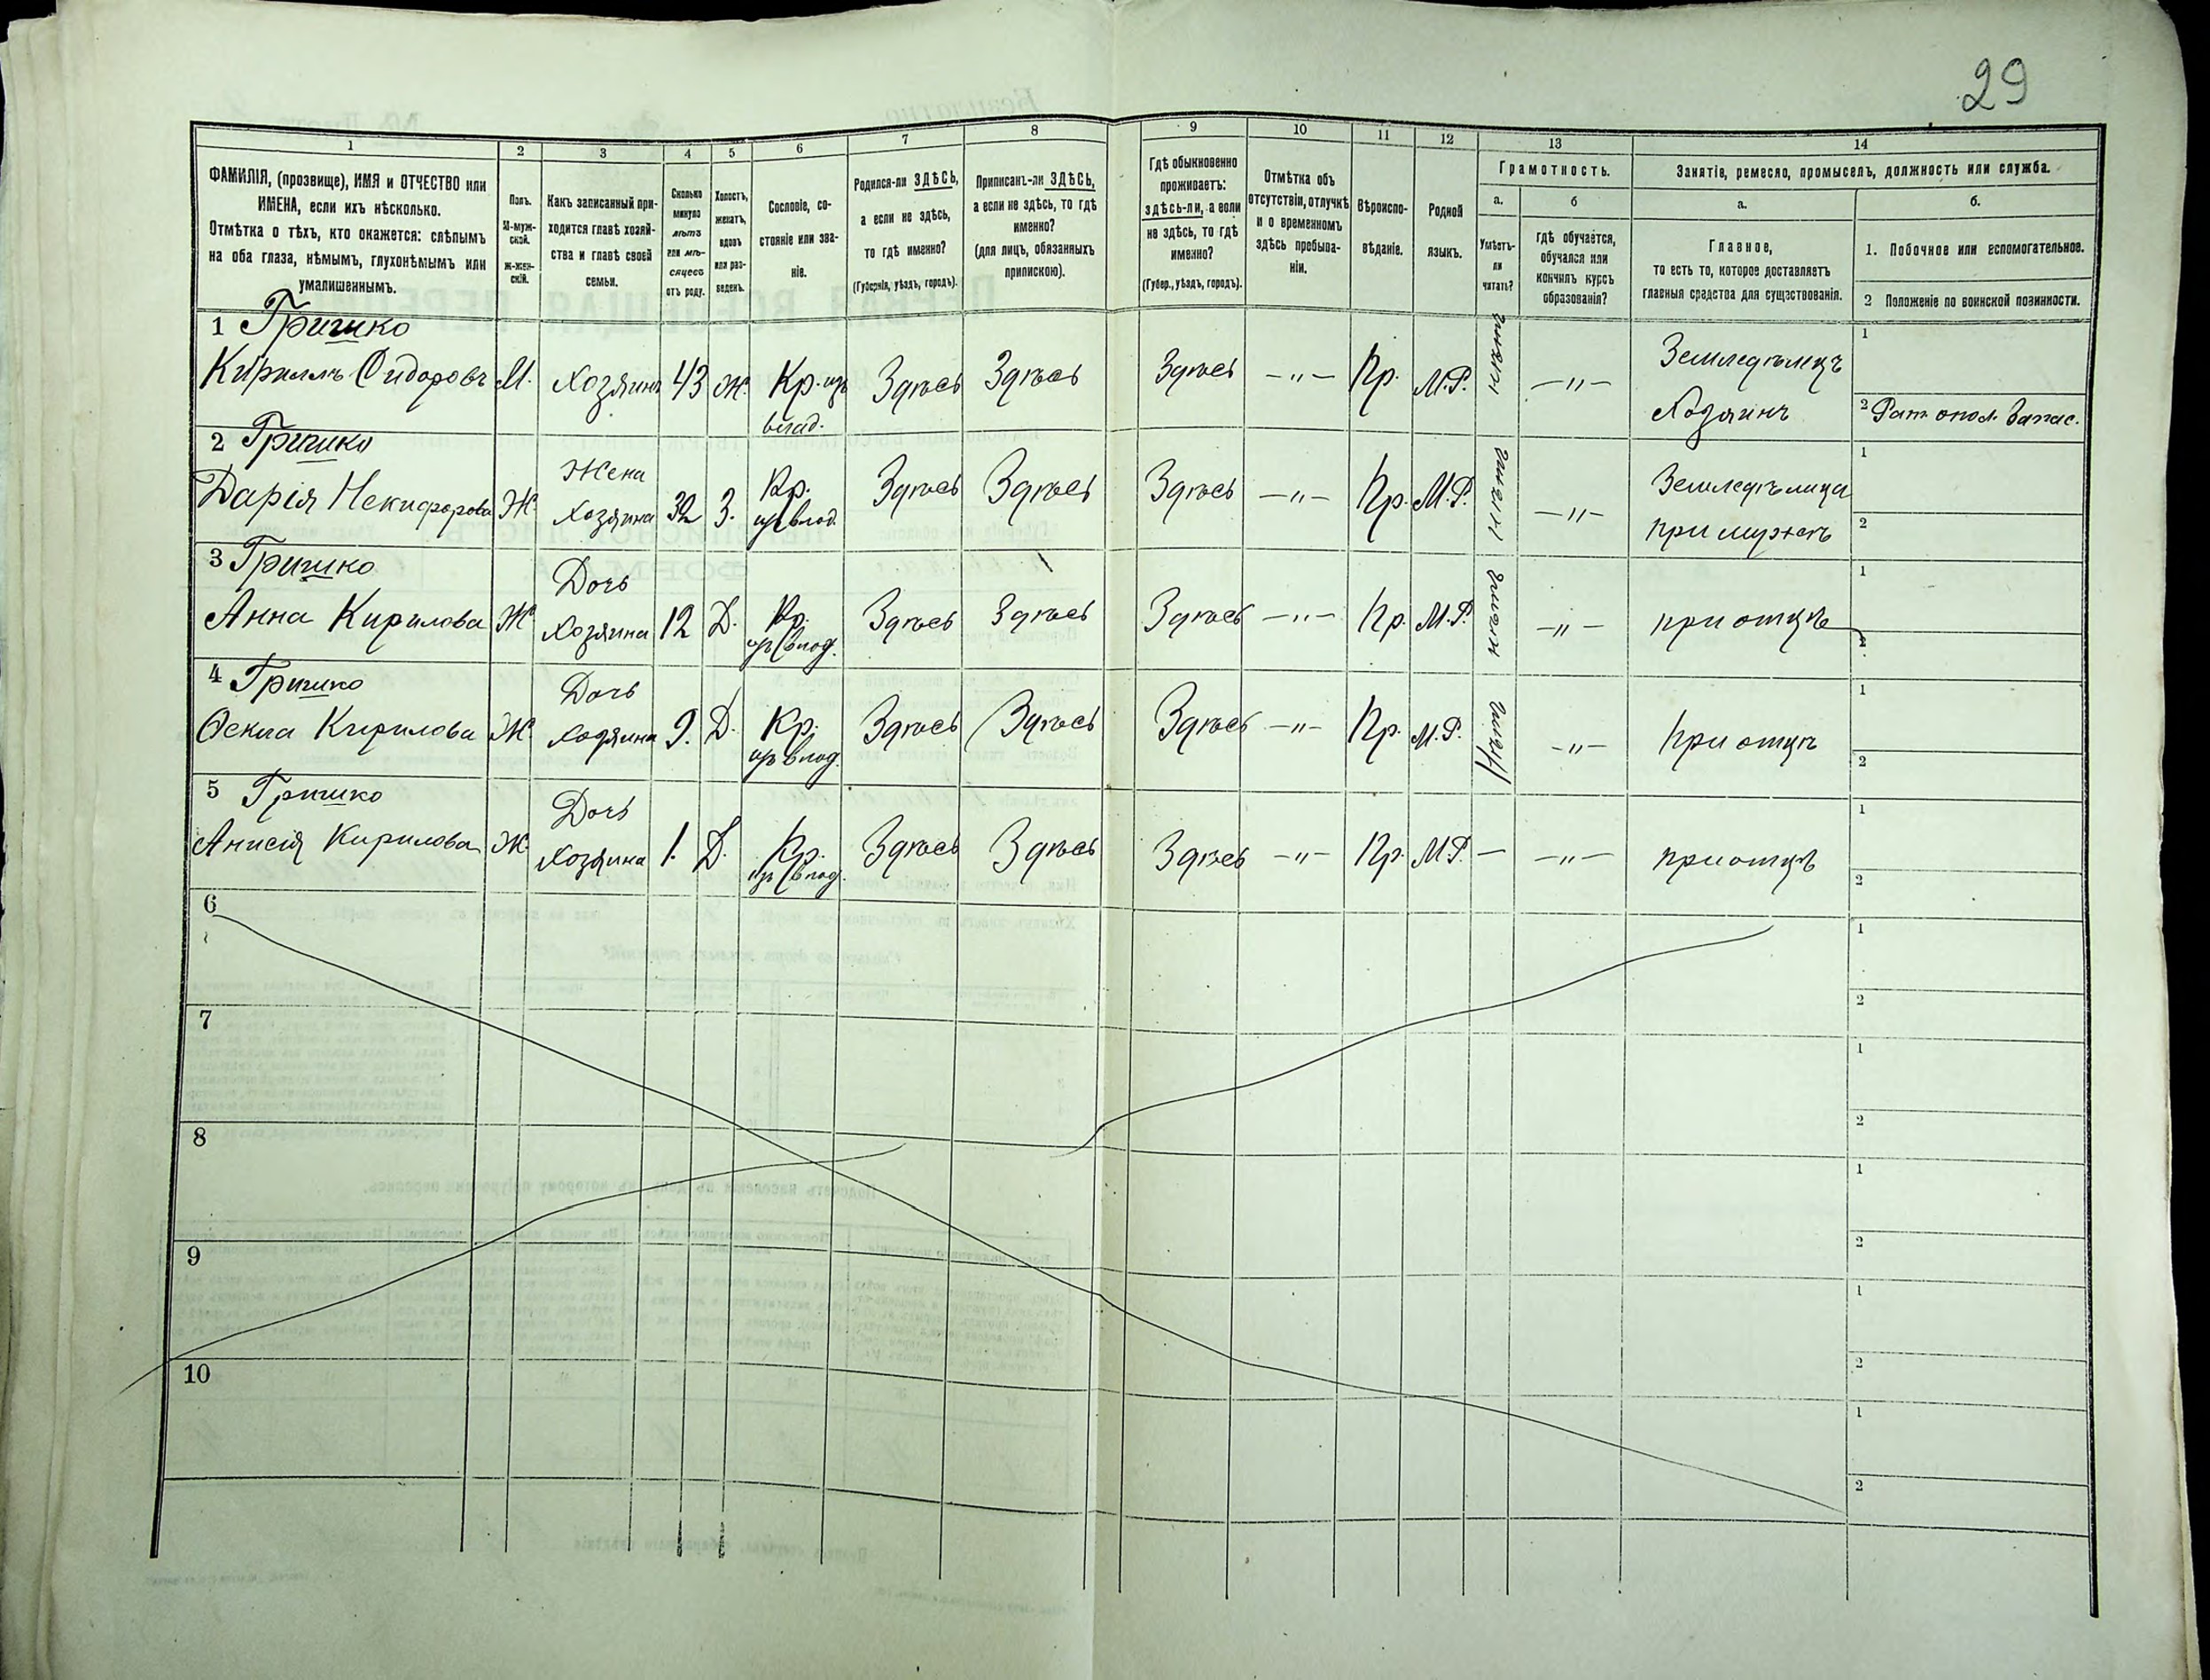 29
1
2
3
4
5
6
7
8
9
10
11
12
13
14
ФАМИЛІЯ, (прозвище), ИМЯ и ОТЧЕСТВО или
ИМЕНА, если ихъ нѣсколько.
Отмѣтка о тѣхъ, кто окажется: слѣпымъ
на оба глаза, нѣмымъ, глухонѣмымъ или
умалишеннымъ.
Полъ.
М-муж-
ской.
Ж-жен-
скій.
Какъ записанный при-
ходится главѣ хозяй-
ства и главѣ своей
семьи.
Сколько
минуло
лѣтъ
или мѣ-
сяцевъ
отъ роду.
Холостъ,
женатъ,
вдовъ
или раз-
веденъ.
Сословіе, со-
стояніе или зва-
ніе.
Родился-ли ЗДѢСЬ,
а если не здѣсь,
то гдѣ именно?
(Губернія, уѣздъ, городъ).
Приписанъ-ли ЗДѢСЬ,
а если не здѣсь, то гдѣ
именно?
(для лицъ, обязанныхъ
припискою).
Гдѣ обыкновенно
проживаетъ:
здѣсь-ли, а если
не здѣсь, то гдѣ
именно?
(Губер., уѣздъ, городъ).
Отмѣтка объ
отсутствіи, отлучкѣ
и о временномъ
здѣсь пребыва-
ніи.
Вѣроиспо-
вѣданіе.
Родной
языкъ.
Грамотность.
а.
Умѣетъ-
ли
читать?
б
гдѣ обучается,
обучался или
кончилъ курсъ
образованія?
Занятіе, ремесло, промыселъ, должность или служба.
а.
Главное,
то есть то, которое доставляетъ
главныя средства для существованія.
б.
1. Побочное или вспомогательное.
2 Положеніе по воинской повинности.
1 Гришко
Кириллъ Сидоровъ М. Хозяинъ 43 Ж. Кр. изъ влад. Здѣсь Здѣсь Здѣсь —"— Пр. М.Р. —"— Земледѣлецъ
Хозяинъ
1
2 Рат. опол. Запас.
2 Гришко
Дарія Никифорова Ж. Жена
Хозяина 32 З. Кр. Здѣсь Здѣсь Здѣсь —"— Пр. М.Р. —"— Земледѣлица
при мужѣ
1
2
3 Гришко
Анна Кирилова Ж Дочь
Хозяина 12 Д. Кр. Здѣсь Здѣсь Здѣсь —"— Пр. М.Р. —"— при отцѣ
1
2
4 Гришко
Кирилова Ж Дочь
Хозяина 9. Д. Кр. Здѣсь Здѣсь Здѣсь —"— Пр. М.Р. —"— При отцѣ
1
2
5 Гришко
Анисія Кирилова Ж Дочь
Хозяина 1. Д. Кр. Здѣсь Здѣсь Здѣсь —"— Пр. М.Р. — —"— при отцѣ
1
2
6
1
2
7
1
2
8
1
2
9
1
2
10
1
2